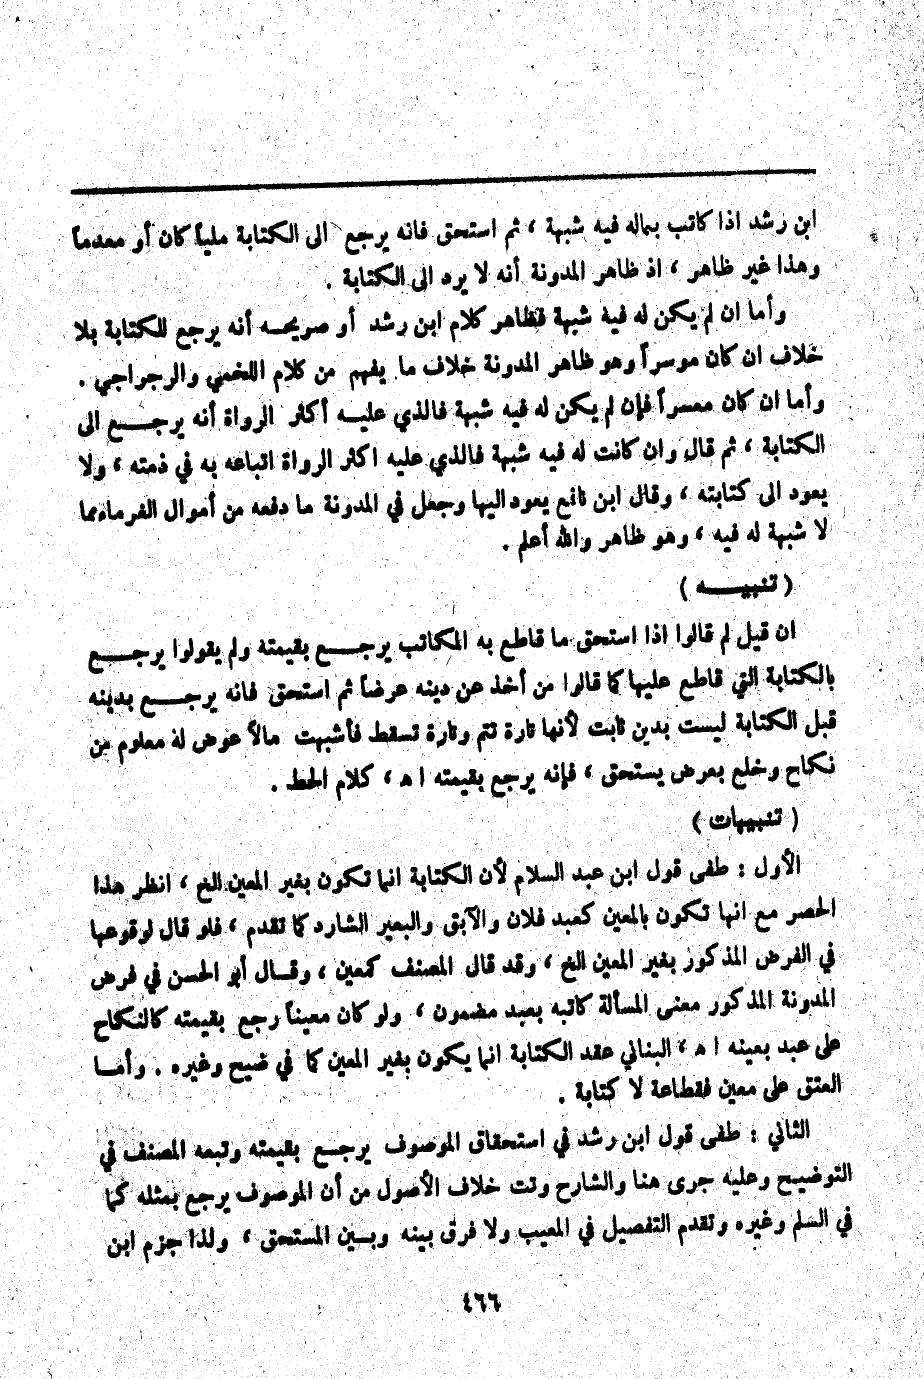 ابن رشد اذا كاتب بماله فيه شبهة ، ثم استحق فانه يرجع الى الكتابة ملياً كان أو معدماً
وهذا غير ظاهر ، اذ ظاهر المدونة أنه لا يرد الى الكتابة .
وأما ان لم يكن له فيه شبهة فظاهر كلام ابن رشد أو صريحـه أنه يرجع للكتابة بلا
خلاف ان كان موسراً وهو ظاهر المدونة خلاف ما يفهم من كلام اللخمي والرجراجي .
وأما ان كان معسراً فإن لم يكن له فيه شبهة فالذي عليـه أكثر الرواة أنه يرجـــع الى
الكتابة ، ثم قال وان كانت له فيه شبهة فالذي عليه اكثر الرواة اتباعه به في ذمته ، ولا
يعود الى كتابته ، وقال ابن نافع يعود اليها وجعل في المدونة ما دفعه من أموال الغرماء مما
لا شبهة له فيه ، وهو ظاهر والله أعلم .
( تنبيـــه )
ان قيل لم قالوا اذا استحق ما قاطع به المكاتب يرجـــع بقيمته ولم يقولوا يرجـــع
بالكتابة التي قاطع عليها كما قالوا من أخذ عن دينه عرضاً ثم استحق فانه يرجـــع بدينه
قبل الكتابة ليست بدين ثابت لأنها تارة تتم وتارة تسقط فأشبهت مالاً عوض له معلوم من
نكاح وخلع بعرض يستحق ، فإنه يرجع بقيمته ا ه ، كلام الحط .
( تنبيهات )
الأول : طفى قول ابن عبد السلام لأن الكتابة انما تكون بغير المعين الخ ، انظر هذا
الحصر مع انها تكون بالمعين كعبد فلان والآبق والبعير الشارد كما تقدم ، فلو قال لوقوعها
في الفرض المذكور بغير المعين الخ ، وقد قال المصنف كمعين ، وقـال أبو الحسن في فرض
المدونة المذكور معنى المسألة كاتبه بعبد مضمون ، ولو كان معيناً رجع بقيمته كالنكاح
على عبد بعينه ا ه ، البناني عقد الكتابة انما يكون بغير المعين كما في ضيح وغيره . وأمـا
العتق على معين فقطاعة لا كتابة .
الثاني : طفى قول ابن رشد في استحقاق الموصوف يرجـع بقيمته وتبعه المصنف في
التوضيح وعليه جرى هنا والشارح وتت خلاف الأصول من أن الموصوف يرجع بمثله كما
في السلم وغيره وتقدم التفصيل في المعيب ولا فرق بينه وبـين المستحق ، ولذا جزم ابن
٤٦٦